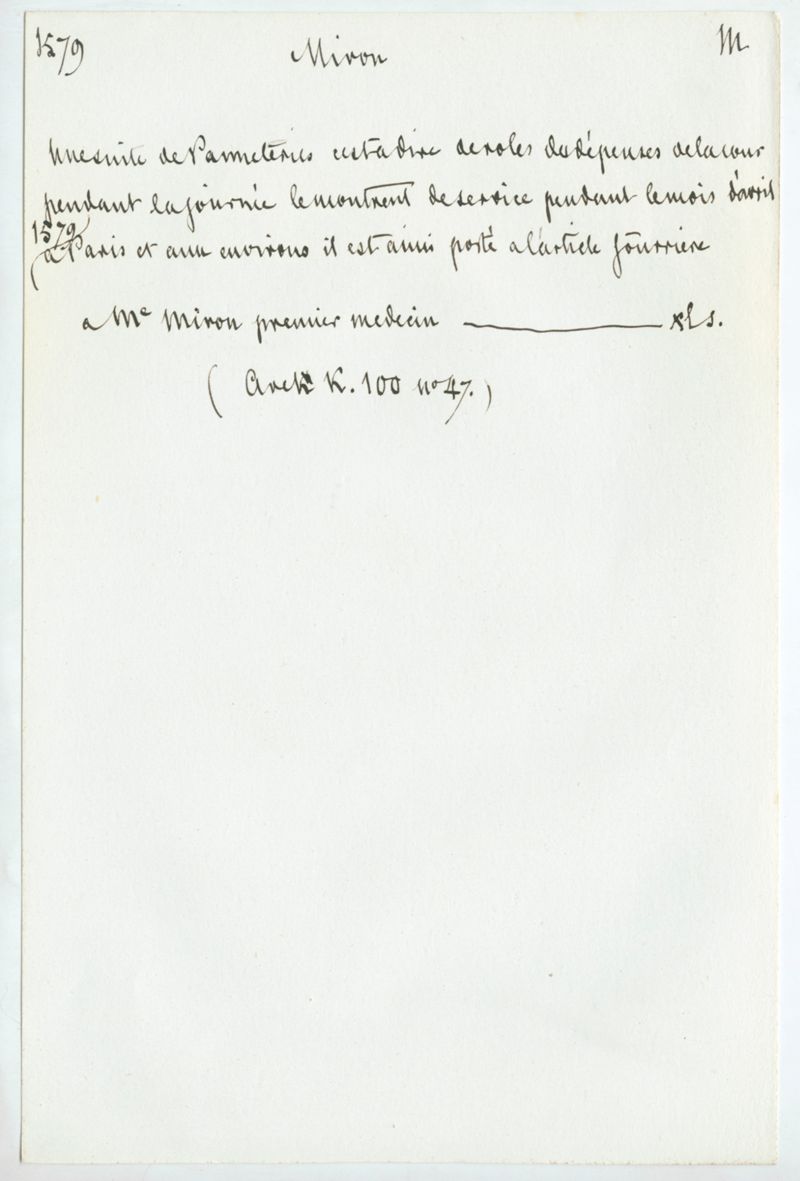 1579 Miron M
Une suite de Panneteries c'est a dire de roles des dépenses de la cour
pendant la journée le montrent de service pendant le mois d'avril
1579
(a Paris et aux environs il est ainsi porté a l'article fourriere
a Me Miron premier medecin ———— xl s.
(Arch K. 100 no 47.)